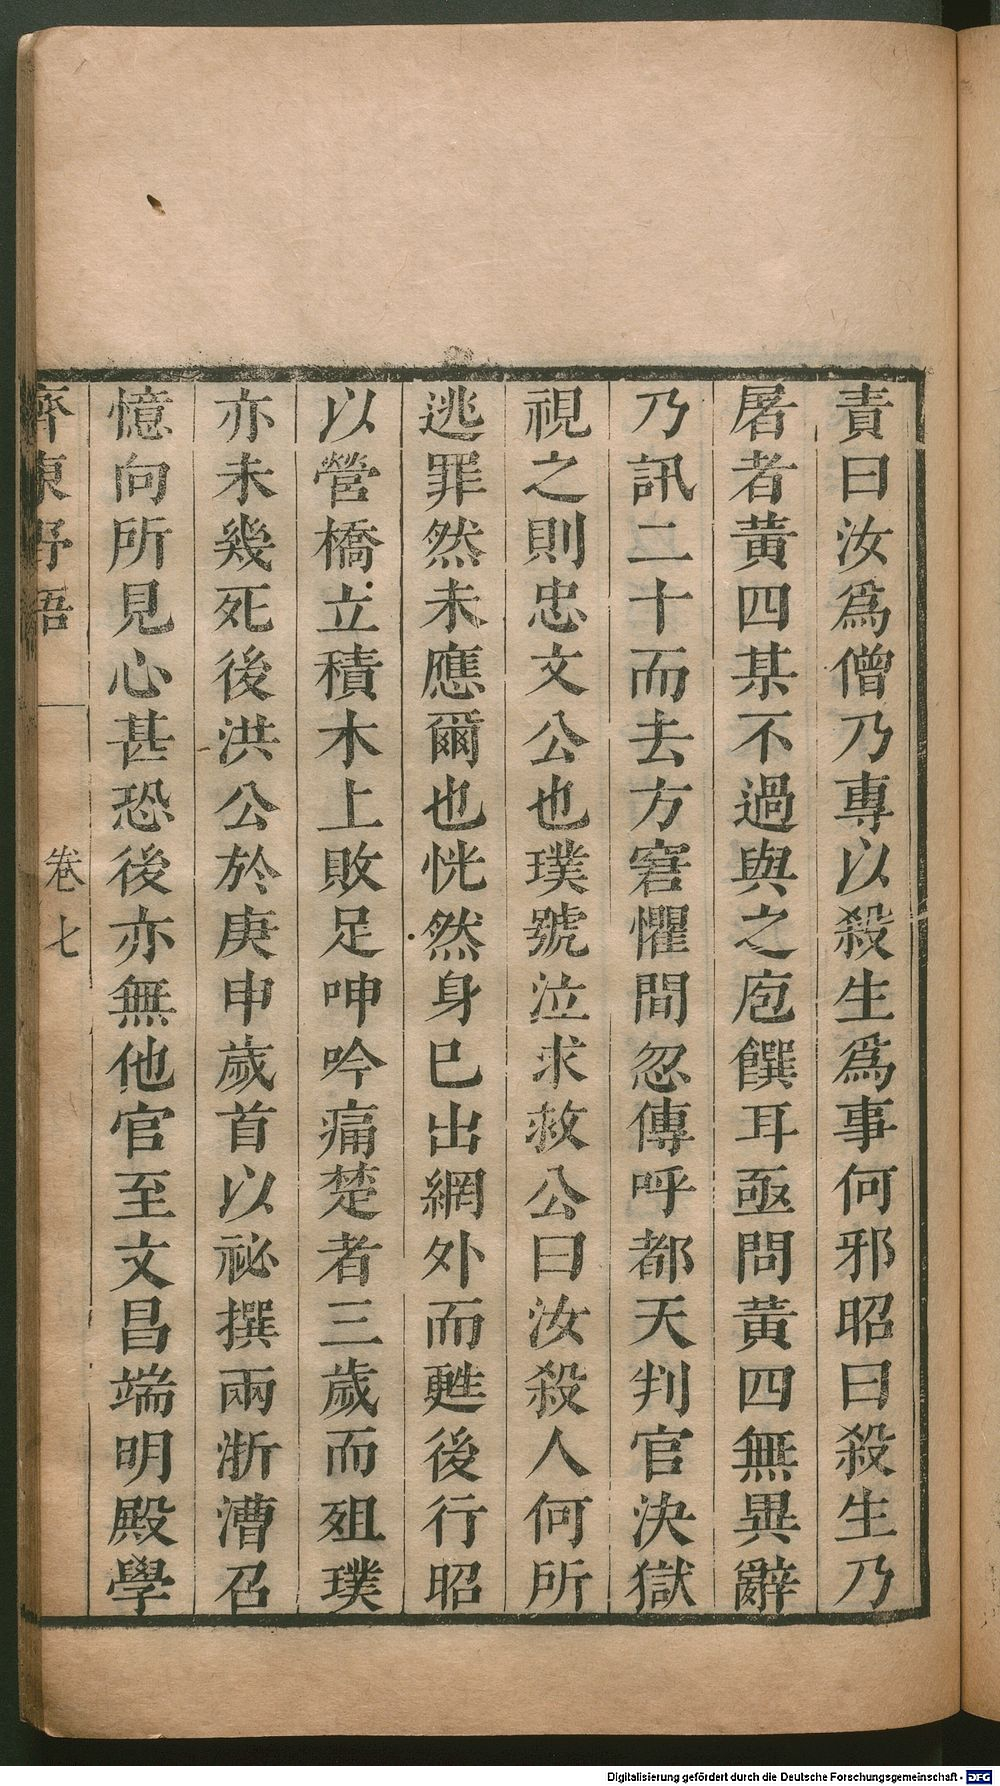 責曰汝爲僧乃專以殺生爲事何邪昭曰殺生乃
屠者黄四某不過與之庖饌耳亟問黄四無異辭
乃訊二十而去方窘懼間忽傳呼都天判官決獄
視之則忠文公也璞號泣求救公曰汝殺人何所
逃罪然未應爾也恍然身巳出網外而甦後行昭
以營橋立積木上敗足呻吟痛楚者三歲而殂璞
亦未幾死後洪公於庚申歲首以祕撰兩浙漕召
憶向所見心甚恐後亦無他官至文昌端明殿學
齊東野語
卷七
Digitalisierung gefördert durch die Deutsche Forschungsgemeinschaft - DFG